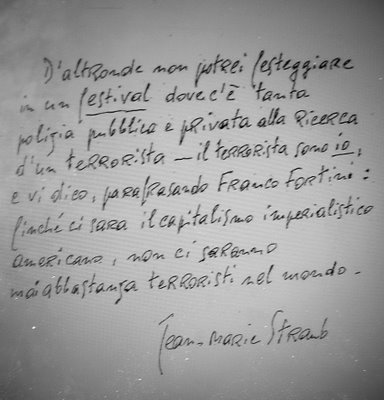 D'altronde non potrei festeggiare
in un festival dove c'è tanta
polizia pubblica e privata alla ricerca
d'un terrorista — il terrorista sono io,
e vi dico, parafrasando Franco Fortini:
finché ci sarà il capitalismo imperialistico
americano, non ci saranno
mai abbastanza terroristi nel mondo.
Jean-Marie Straub